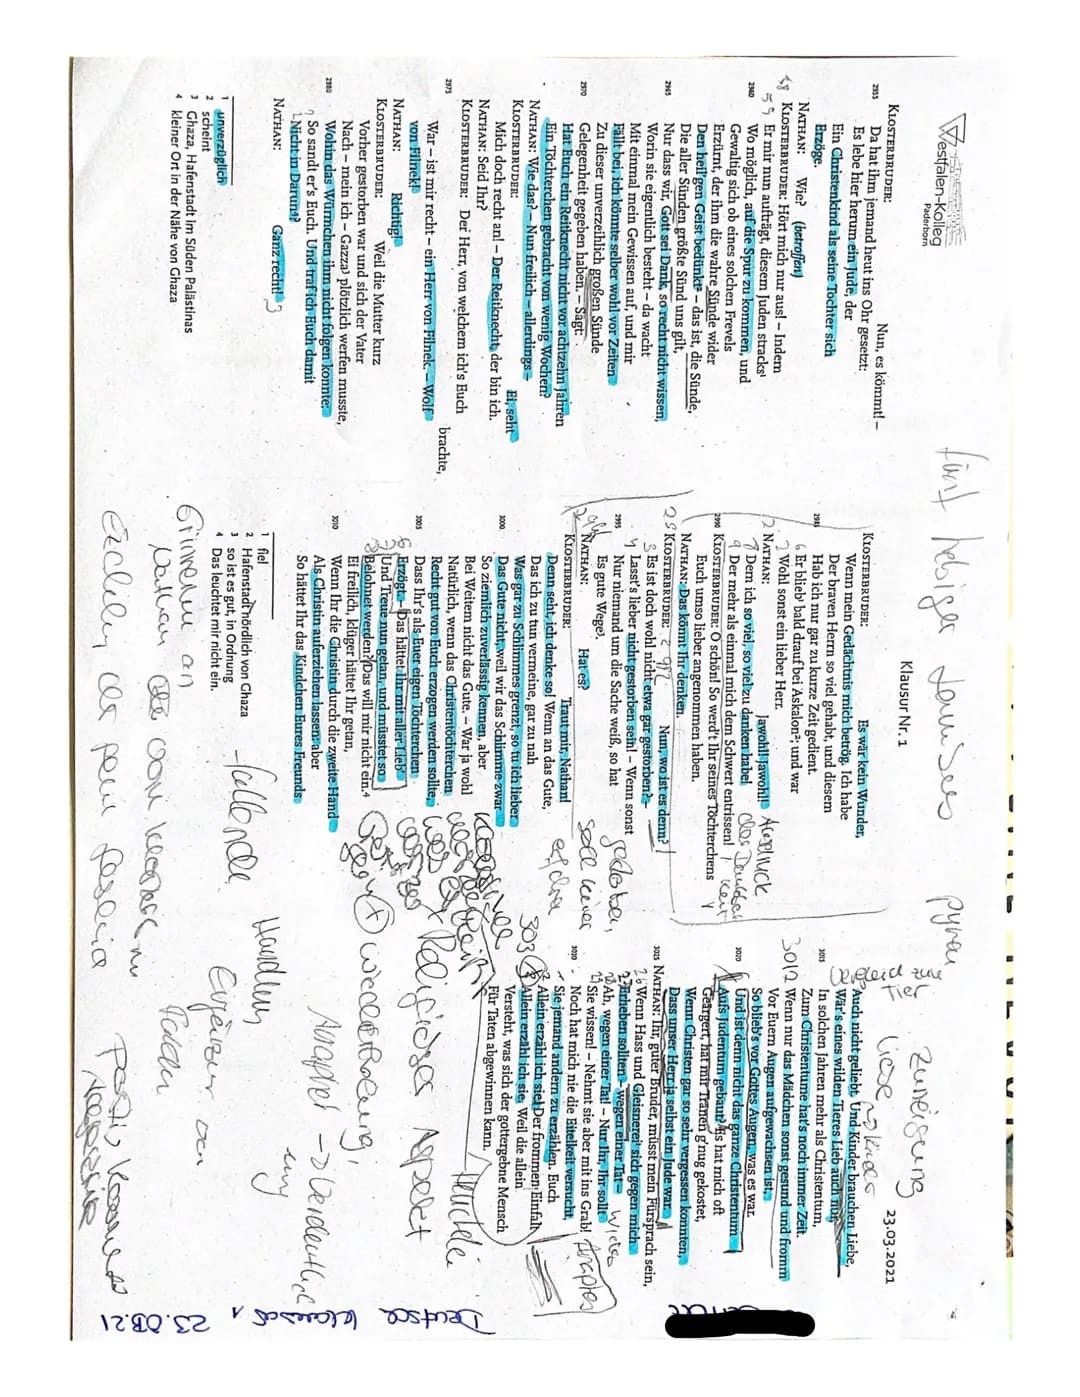 Westfalen-Kolleg
Paderborn
Klausur Nr. 1
23.03.2021
KLOSTERBRUDER: Nun, es kömmt! –
2955 Da hat ihm jemand heut ins Ohr gesetzt:
Es lebe hier herum ein Jude, der
Ein Christenkind als seine Tochter sich
Erzöge.
NATHAN: Wie? (betroffen)
KLOSTERBRUDER: Hört mich nur aus! – Indem
2960 Er mir nun aufträgt, diesem Juden stracks¹
Wo möglich, auf die Spur zu kommen, und
Gewaltig sich ob eines solchen Frevels
Erzürnt, der ihm die wahre Sünde wider
Den heil'gen Geist bedünkt² – das ist, die Sünde,
2965 Die aller Sünden größte Sünd uns gilt,
Nur dass wir, Gott sei Dank, so recht nicht wissen,
Worin sie eigentlich besteht – da wacht
Mit einmal mein Gewissen auf, und mir
Fällt bei, ich könnte selber wohl vor Zeiten
2970 Zu dieser unverzeihlich großen Sünde
Gelegenheit gegeben haben. – Sagt:
Hat Euch ein Reitknecht nicht vor achtzehn Jahren
Ein Töchterchen gebracht von wenig Wochen?
NATHAN: Wie das? – Nun freilich – allerdings –
KLOSTERBRUDER: Ei, seht
Mich doch recht an! – Der Reitknecht, der bin ich.
NATHAN: Seid Ihr?
KLOSTERBRUDER: Der Herr, von welchem ich's Euch
brachte,
2975 War – ist mir recht – ein Herr von Filnek. – Wolf
von Filnek!
NATHAN: Richtig!
KLOSTERBRUDER: Weil die Mutter kurz
Vorher gestorben war und sich der Vater
Nach – mein ich – Gazza³ plötzlich werfen musste,
2980 Wohin das Würmchen ihm nicht folgen konnte:
So sandt er's Euch. Und traf ich Euch damit
Nicht in Darun⁴?
NATHAN: Ganz recht!
1 unverzüglich
2 scheint
3 Ghaza, Hafenstadt im Süden Palästinas
4 kleiner Ort in der Nähe von Ghaza
KLOSTERBRUDER: Es wär kein Wunder,
Wenn mein Gedächtnis mich betrög. Ich habe
Der braven Herrn so viel gehabt, und diesem
2985 Hab ich nur gar zu kurze Zeit gedient.
Er blieb¹ bald drauf bei Askalon²; und war
Wohl sonst ein lieber Herr.
NATHAN: Jawohl! Jawohl!
Dem ich so viel, so viel zu danken habe!
Der mehr als einmal mich dem Schwert entrissen!
2990 KLOSTERBRUDER: O schön! So werd't Ihr seines Töchterchens
Euch umso lieber angenommen haben.
NATHAN: Das könnt Ihr denken.
KLOSTERBRUDER: Nun, wo ist es denn?
Es ist doch wohl nicht etwa gar gestorben? –
Lasst's lieber nicht gestorben sein! – Wenn sonst
2995 Nur niemand um die Sache weiß, so hat
Es gute Wege³.
NATHAN: Hat es?
KLOSTERBRUDER: Traut mir, Nathan!
Denn seht, ich denke so! Wenn an das Gute,
Das ich zu tun vermeine, gar zu nah
Was gar zu Schlimmes grenzt, so tu ich lieber
3000 Das Gute nicht, weil wir das Schlimme zwar
So ziemlich zuverlässig kennen, aber
Bei Weitem nicht das Gute. – War ja wohl
Natürlich, wenn das Christentöchterchen
Recht gut von Euch erzogen werden sollte,
3005 Dass Ihr's als Euer eigen Töchterchen
Erzögt. – Das hättet Ihr mit aller Lieb
Und Treue nun getan, und müsstet so
Belohnet werden? Das will mir nicht ein.⁴
Ei freilich, klüger hättet Ihr getan,
3010 Wenn Ihr die Christin durch die zweite Hand
Als Christin auferziehen lassen: aber
So hättet Ihr das Kindchen Eures Freunds
1 fiel
2 Hafenstadt nördlich von Ghaza
3 so ist es gut, in Ordnung
4 Das leuchtet mir nicht ein.
Auch nicht geliebt. Und Kinder brauchen Liebe,
Wär's eines wilden Tieres Lieb auch nur,
3015 In solchen Jahren mehr als Christentum.
Zum Christentume hat's noch immer Zeit.
Wenn nur das Mädchen sonst gesund und fromm
Vor Euern Augen aufgewachsen ist,
So blieb's vor Gottes Augen, was es war.
3020 Und ist denn nicht das ganze Christentum
Aufs Judentum gebaut? Es hat mich oft
Geärgert, hat mir Tränen g'nug gekostet,
Wenn Christen gar so sehr vergessen konnten,
Dass unser Herr ja selbst ein Jude war.
3025 NATHAN: Ihr, guter Bruder, müsst mein Fürsprach sein,
Wenn Hass und Gleisnerei sich gegen mich
Erheben sollten – wegen einer Tat –
Ah, wegen einer Tat! – Nur Ihr, Ihr sollt
Sie wissen! – Nehmt sie aber mit ins Grab!
3030 Noch hat mich nie die Eitelkeit versucht,
Sie jemand andern zu erzählen. Euch
Allein erzähl ich sie. Der frommen Einfalt
Allein erzähl ich sie. Weil die allein
Versteht, was sich der gottergebne Mensch
Für Taten abgewinnen kann.
3012
Vergleich zum Tier
Liebe → Kinder
Zuneigung
gestorben,
soll keiner
Religiöser Aspekt
Wiederholung,
Anapher → Verdeutlich
ung
Handlung
-fallende
Erinnern an
Deutsch Klausur 1
23.03.21